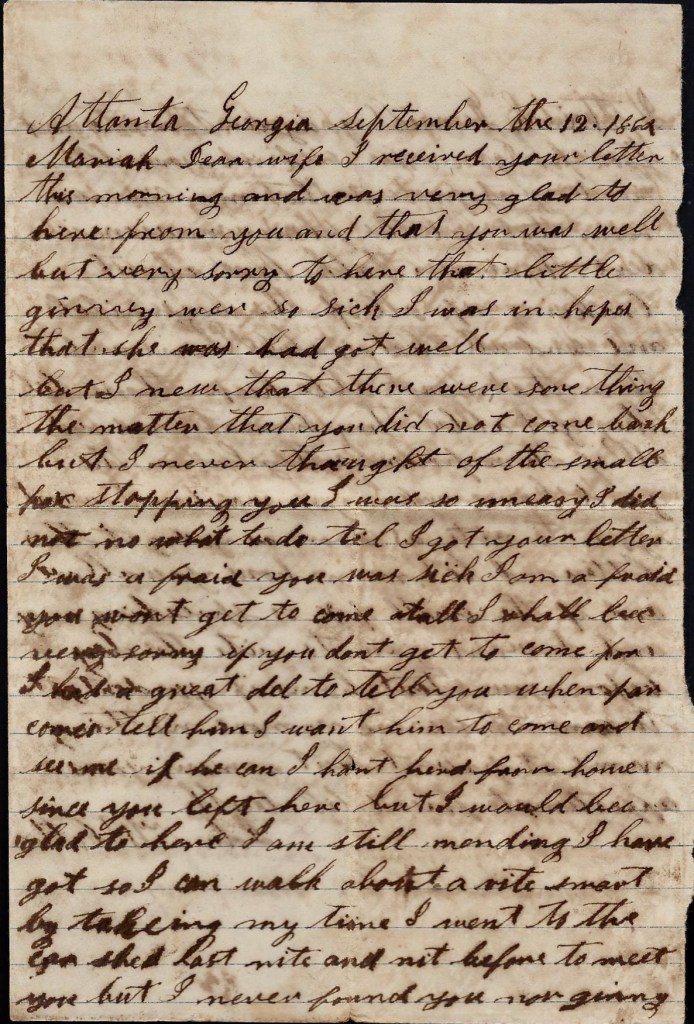 Atlanta Georgia september the 12. 1862
Mariah Dear wife I received your letter
this morning and was very glad to
here from you and that you was well
but very sorry to here that little
ginnny wer so sick I was in hopes
that she was had got well
but I new that there were some thing
the matter that you did not come back
but I never thought of the small
pox stopping you I was so uneasy I did
not no what to do til I got your letter
I was a fraid you was sick I am a fraid
you wont get to come atall I shall bee
very sorry if you dont get to come for
I had a great del to tell you when par
comes tell him I want him to come and
see me if he can I hant herd from home
since you left here but I would bee
glad to here I am still mending I have
got so I can walk about a rite smart
by takeing my time I went to the
car shed last nite and nit before to meet
you but I never found you nor ginny